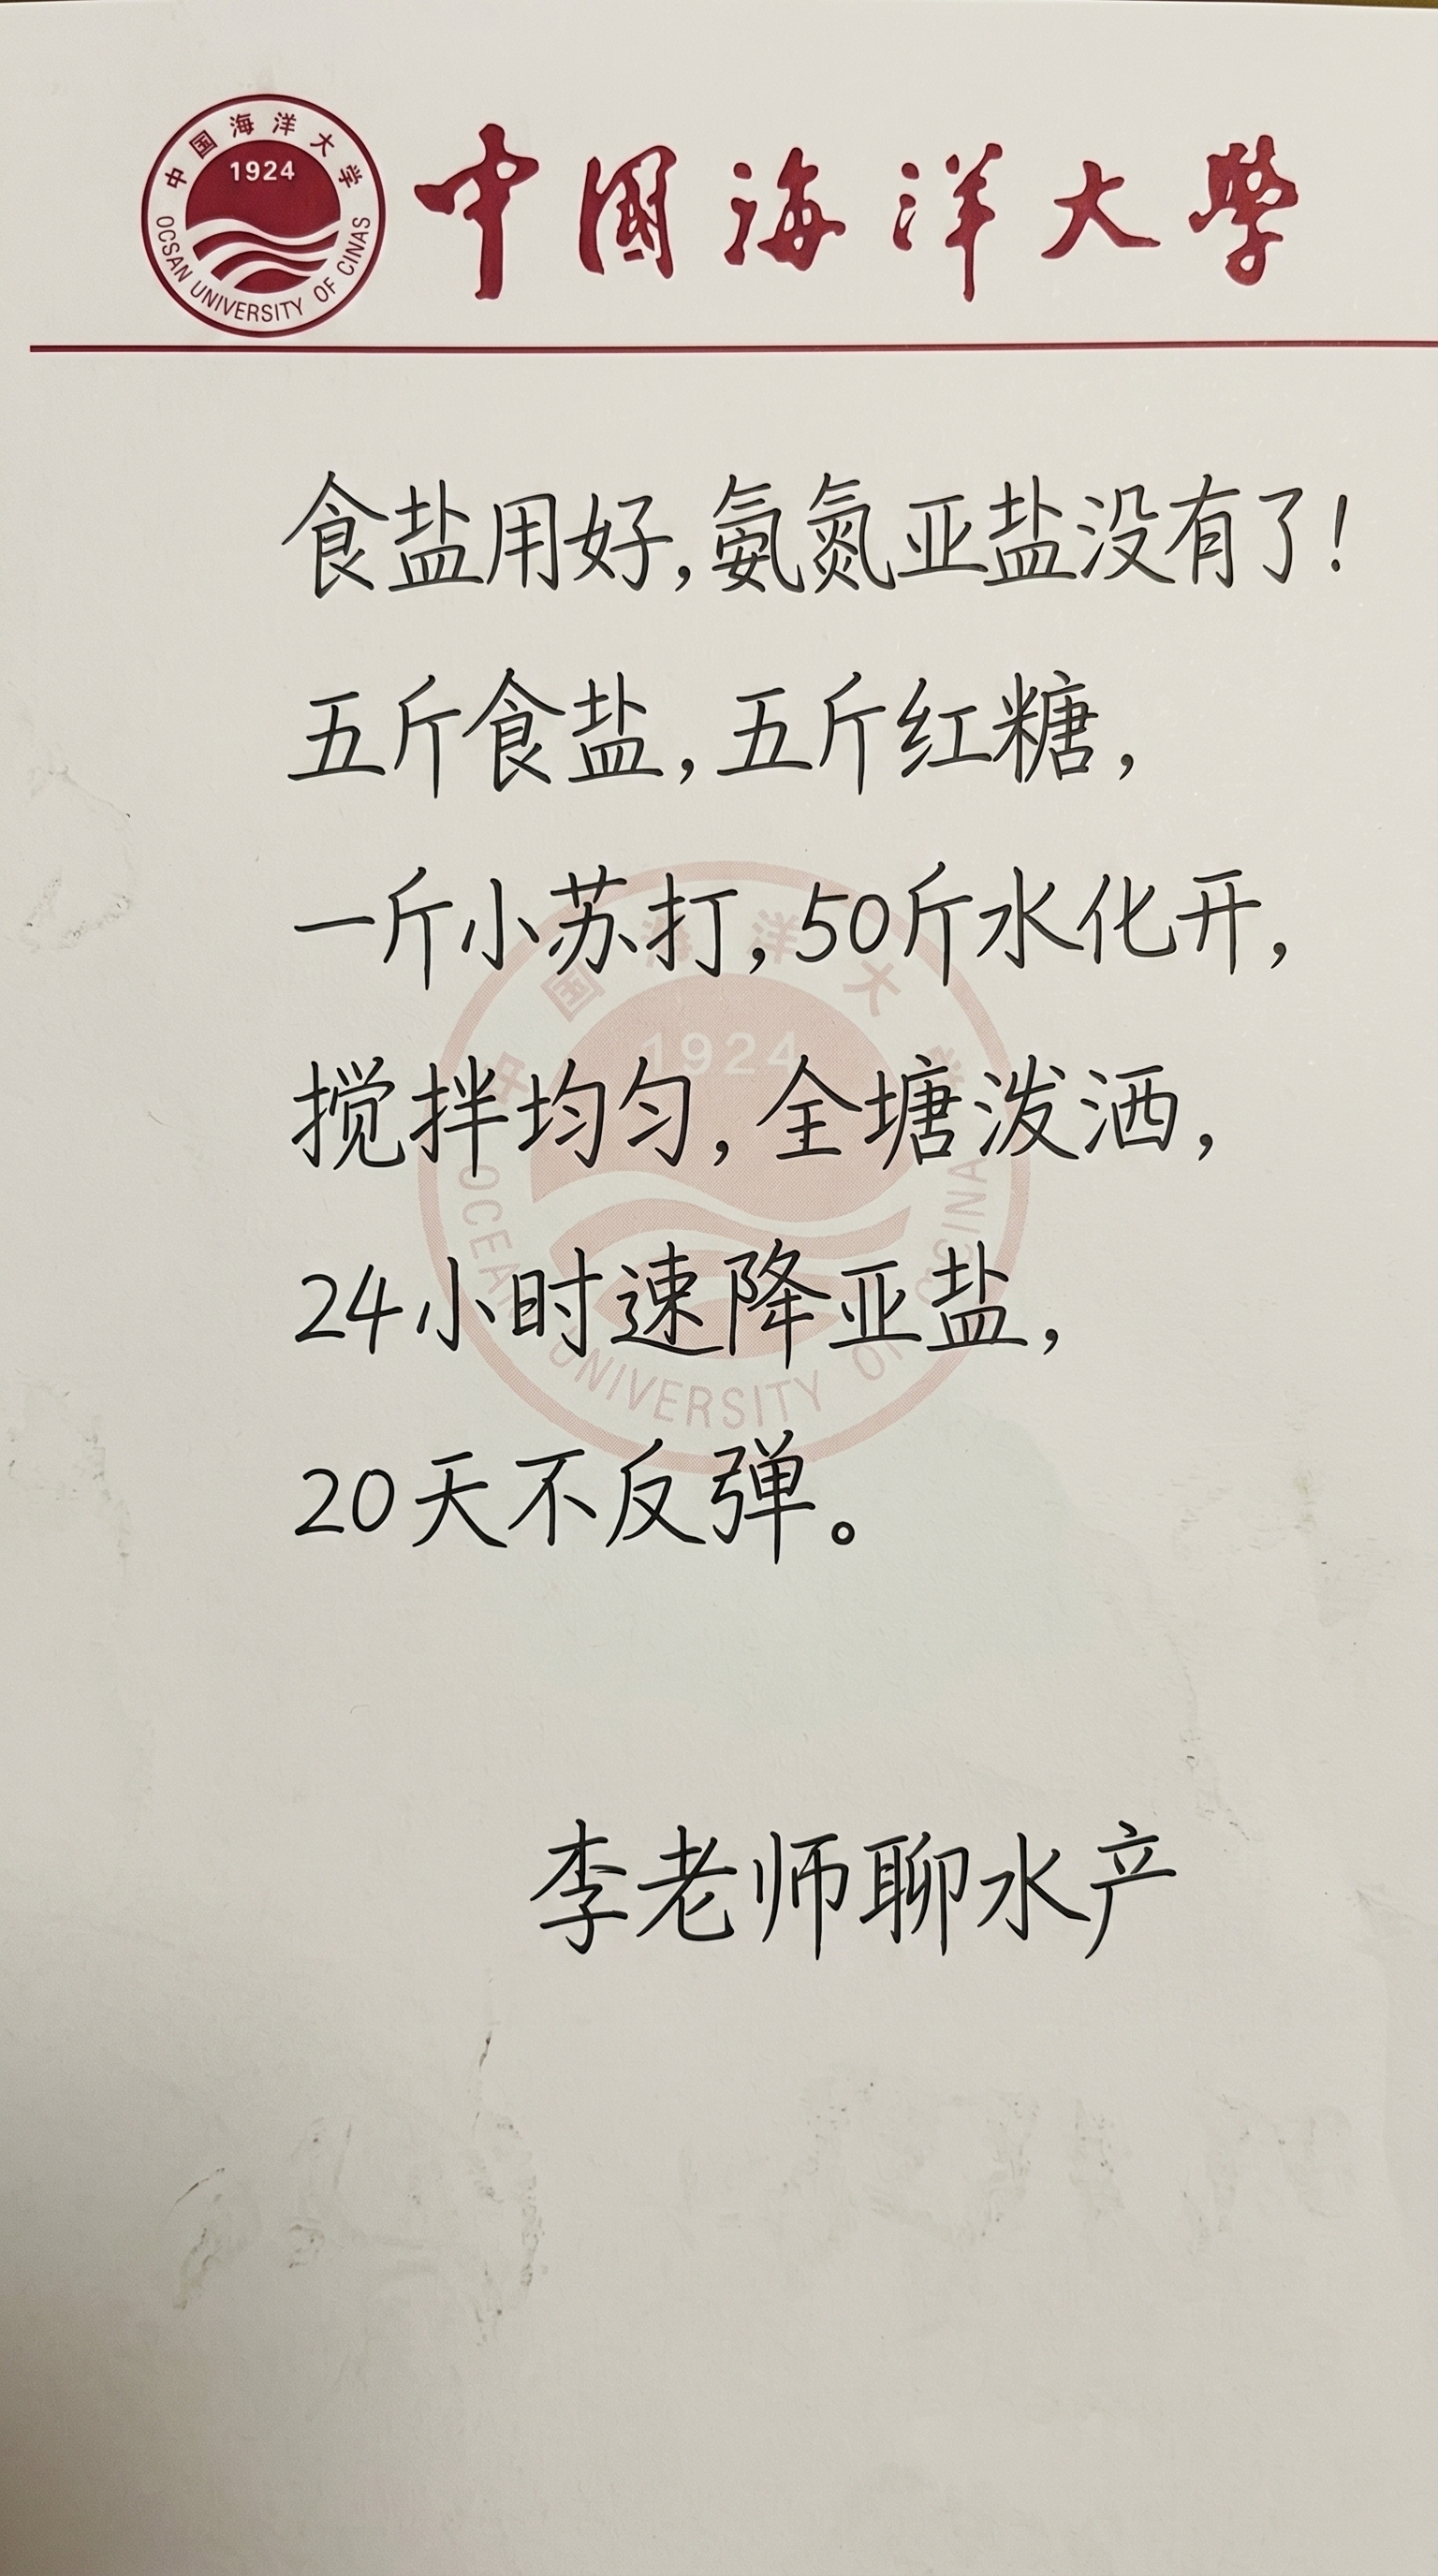 中国海洋大学
1924
OCSAN UNIVERSITY OF CINAS
中國海洋大學
食盐用好,氨氮亚盐没有了!
五斤食盐,五斤红糖,
一斤小苏打,50斤水化开,
搅拌均匀,全塘泼洒,
24小时速降亚盐,
20天不反弹。
中国海洋大学
1924
OCEAN UNIVERSITY OF CINA
李老师聊水产